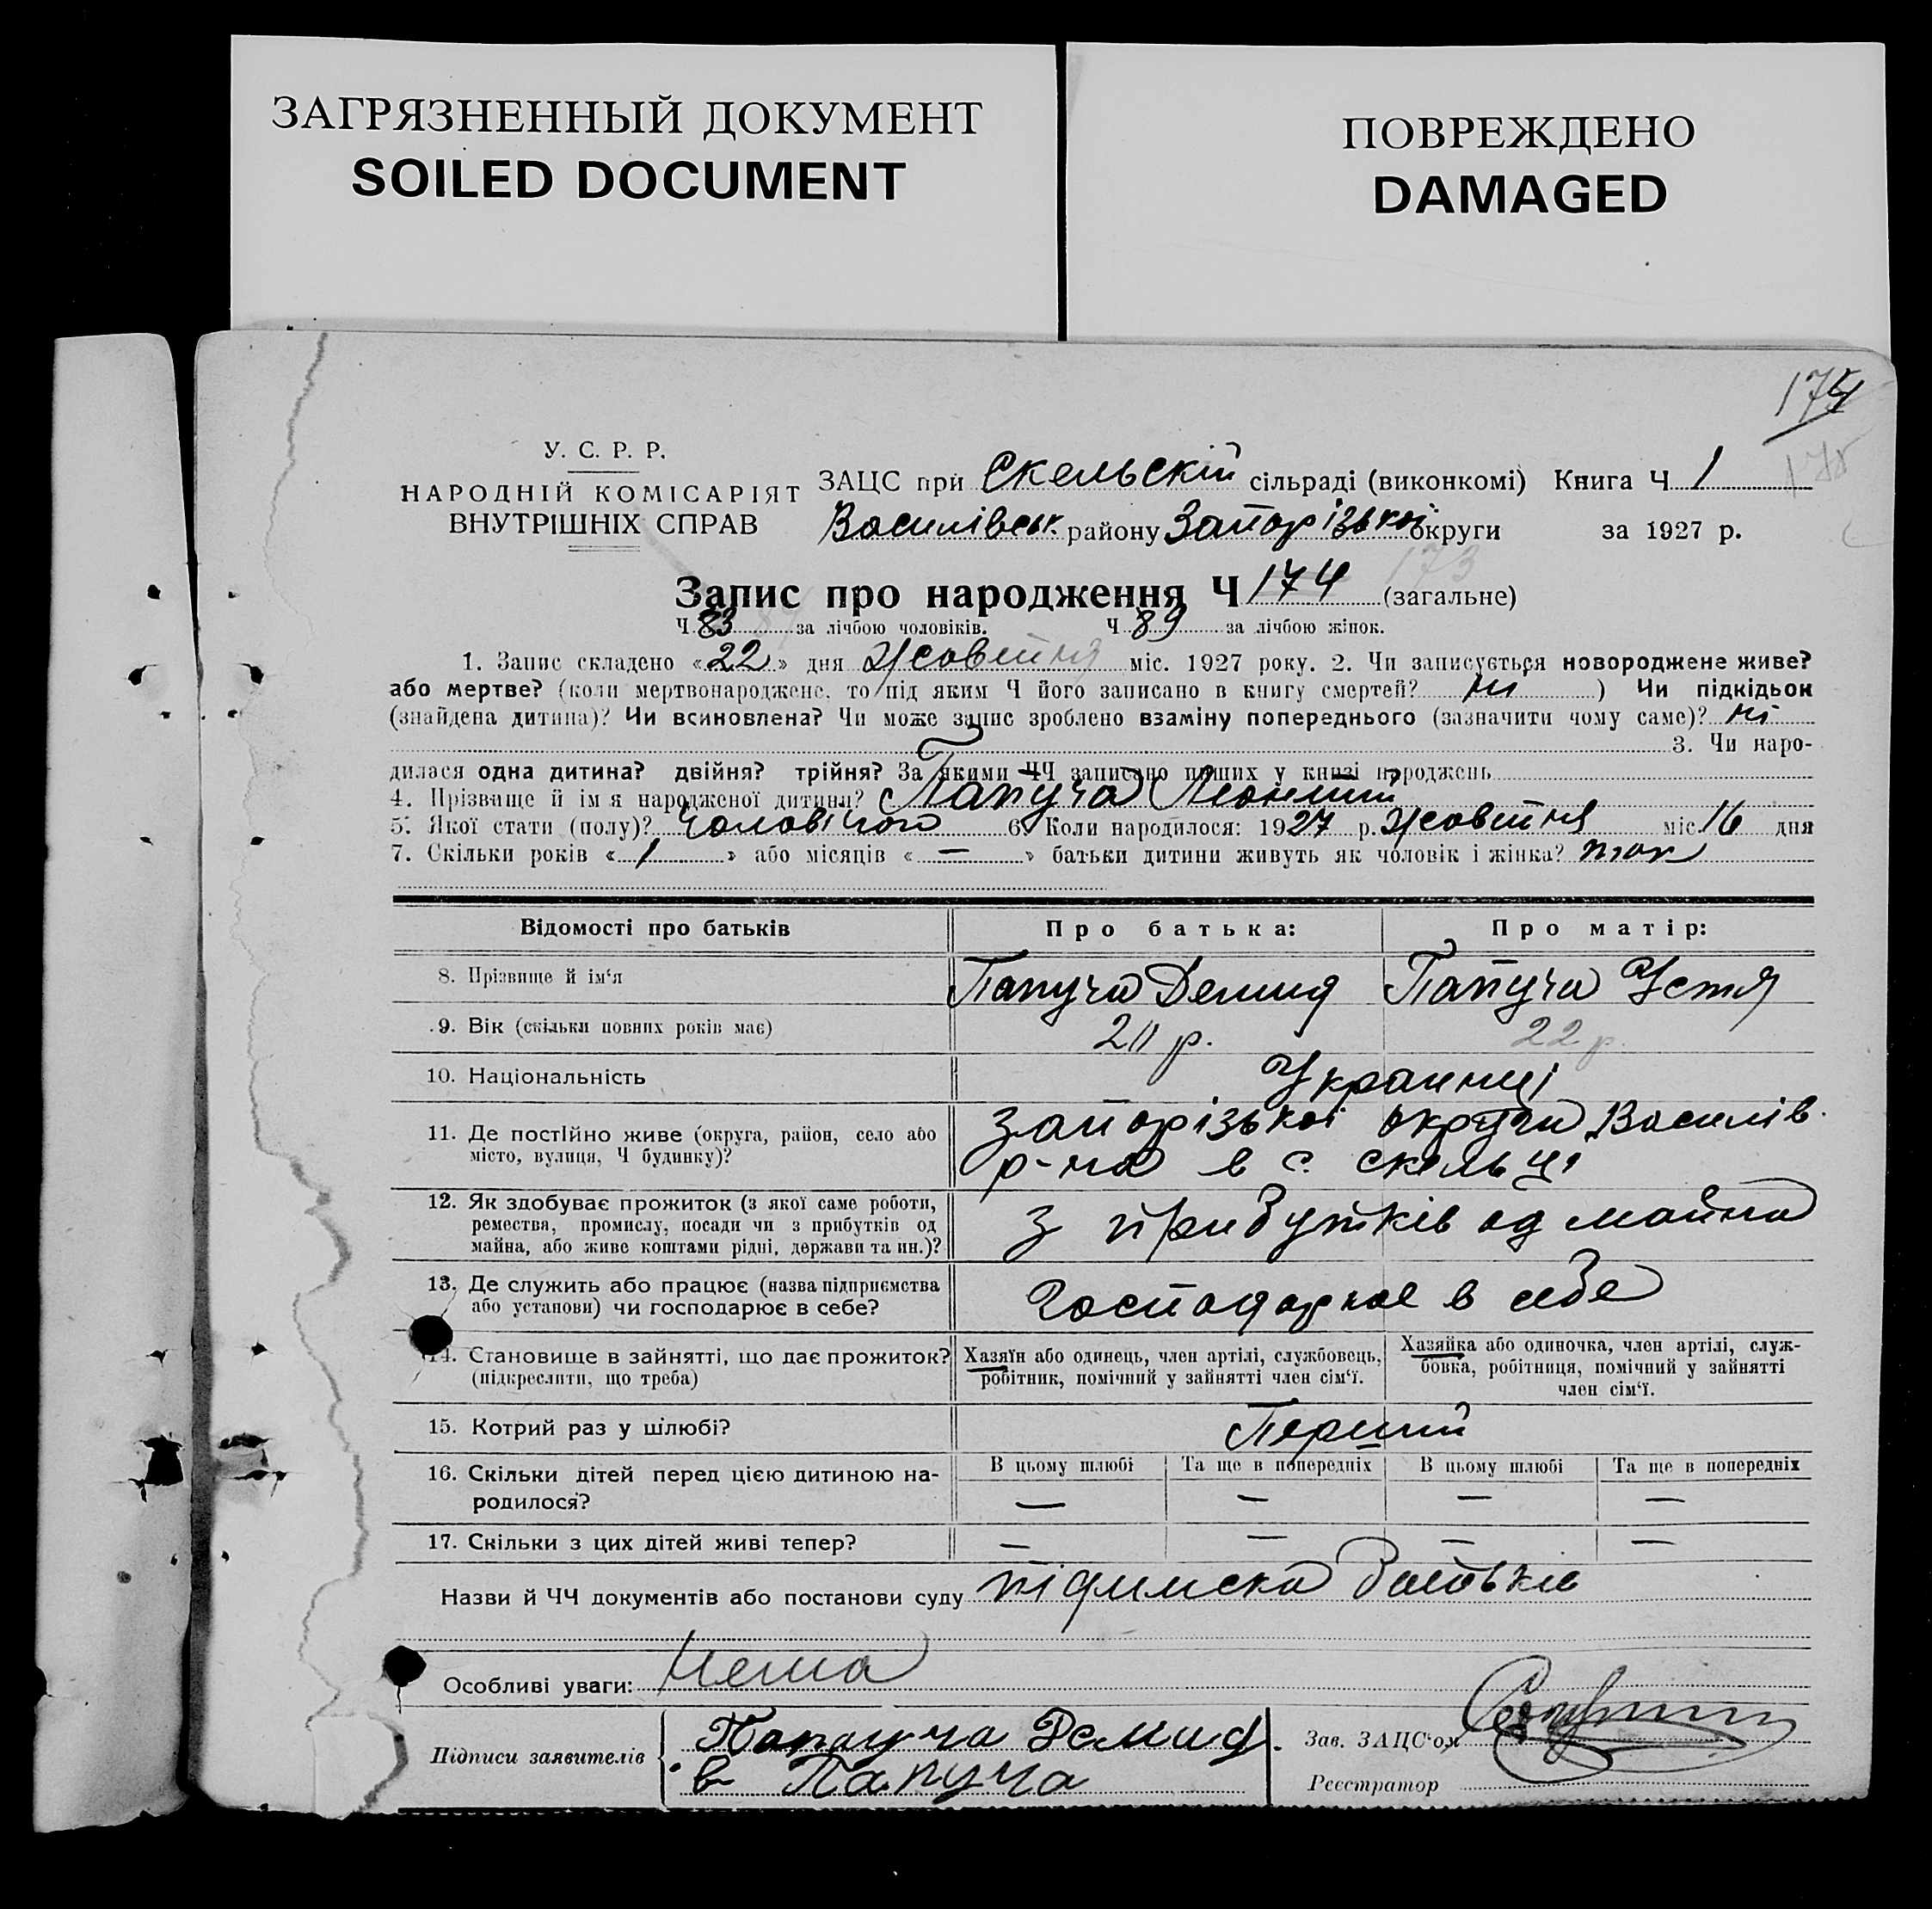 ЗАГРЯЗНЕННЫЙ ДОКУМЕНТ
SOILED DOCUMENT
ПОВРЕЖДЕНО
DAMAGED
174
У. С. Р. Р.
НАРОДНІЙ КОМІСАРІЯТ
ВНУТРІШНІХ СПРАВ
ЗАЦС при Скельскій сільраді (виконкомі) Книга Ч 1
Василівськ. району Запорізької округи за 1927 р.
173
Запис про народження Ч 174 (загальне)
Ч 83 за лічбою чоловіків. Ч 89 за лічбою жінок.
1. Запис складено «22» дня Жовтня міс. 1927 року. 2. Чи записується новороджене живе?
або мертве? (коли мертвонароджене, то під яким Ч його записано в книгу смертей? ні ) Чи підкідьок
(знайдена дитина)? Чи всиновлена? Чи може запис зроблено взаміну попереднього (зазначити чому саме)? ні
3. Чи наро-
дилася одна дитина? двійня? трійня? За якими ЧЧ записано інших у книзі народжень
4. Прізвище й ім'я народженої дитини? Папуча
5. Якої стати (полу)? Чоловічого 6. Коли народилося: 1927 р. Жовтня міс. 16 дня
7. Скільки років « 1 » або місяців « — » батьки дитини живуть як чоловік і жінка? так
Відомості про батьків Про батька: Про матір:
8. Прізвище й ім'я Папуча Демид Папуча Устя
9. Вік (скільки повних років має) 20 р. 22 р.
10. Національність Украинці
11. Де постійно живе (округа, район, село або
місто, вулиця, Ч будинку)?
Запорізької округи Василів.
р-на в с. Скельці
12. Як здобуває прожиток (з якої саме роботи,
ремества, промислу, посади чи з прибутків од
майна, або живе коштами рідні, держави та ин.)?
з прибутків од майна
13. Де служить або працює (назва підприємства
або установи) чи господарює в себе?
Господарює в себе
14. Становище в зайнятті, що дає прожиток?
(підкреслити, що треба)
Хазяїн або одинець, член артілі, службовець,
робітник, помічний у зайнятті член сім'ї.
Хазяйка або одиночка, член артілі, служ-
бовка, робітниця, помічний у зайнятті
член сім'ї.
15. Котрий раз у шлюбі? Перший
16. Скільки дітей перед цією дитиною на-
родилося?
В цьому шлюбі Та ще в попередніх В цьому шлюбі Та ще в попередніх
— — — —
17. Скільки з цих дітей живі тепер? — — — —
Назви й ЧЧ документів або постанови суду підписка батьків
Особливі уваги: Нема
Підписи заявителів Папуча Демид.
в Папуча
Зав. ЗАЦС'ом
Реєстратор